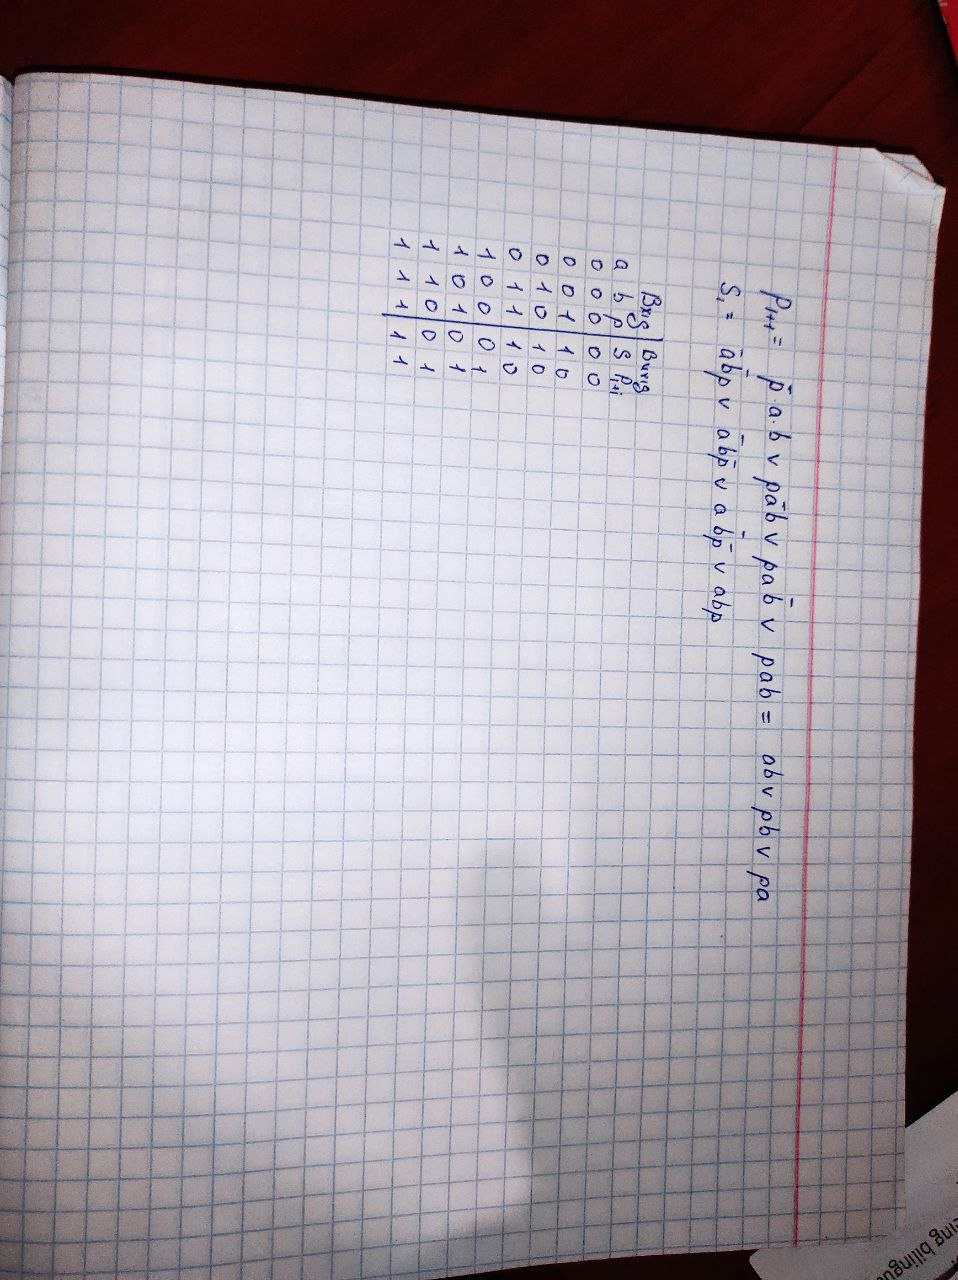 Pᵢ₊₁ = p̄·a·b v pāb v pab̄ v pab = ab v pb v pa
Sᵢ = āb̄p v ābp̄ v ab̄p̄ v abp
Вхід | Вихід
a b p | S Pᵢ₊₁
0 0 0 | 0 0
0 0 1 | 1 0
0 1 0 | 1 0
0 1 1 | 1 0
1 0 0 | 0 1
1 0 1 | 0 1
1 1 0 | 0 1
1 1 1 | 1 1
eing bilingu